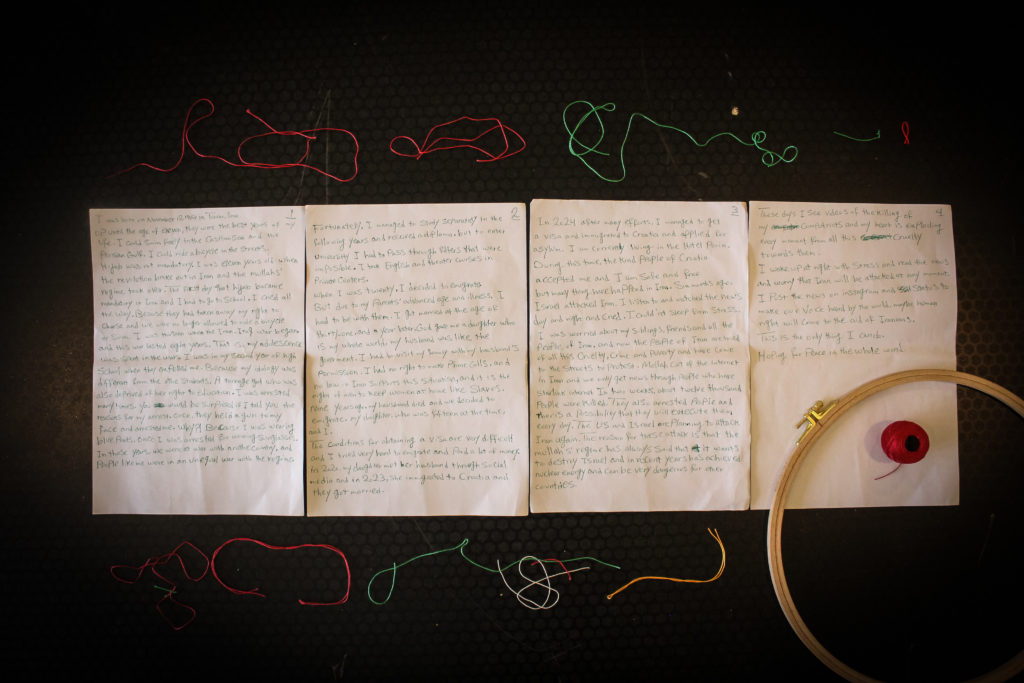 1
I was born on November 12, 1968 in Tehran, Iran
up until the age of eleven, they were the best years of
life. I could swim freely in the Caspian Sea and the
Persian Gulf. I could ride a bicycle in the streets.
Hijab was not mandatory. I was eleven years old when
the revolution broke out in Iran and the mullahs'
regime took over. The first day that hijab became
mandatory in Iran and I had to go to School. I cried all
the way. Because they had taken away my right to
choose and we were no longer allowed to ride a bicycle
or Swim. I was thirteen when the Iran, Iraq war began
and this war lasted eight years. That is, my adolescence
was spent in the war. I was in my second year of high
School when they expelled me. Because my ideology was
different from the other Students. A teenage girl who was
also deprived of her right to education. I was arrested
many times. You would be Surprised if I told you the
reasons for my arrest. Once, they held a gun to my
face and arrested me. Why?! Because I was wearing
blue Pants. Once I was arrested for wearing Sunglasses.
In those years, we were at war with another country, and
People like me were in an unequal war with the regime
2
Fortunately, I managed to study separately in the
following years and received a diploma. but to enter
University I had to Pass through filters that were
impossible. I took English and theater courses in
Private Centers.
when I was twenty, I decided to emigrate
But due to my Parents' advanced age and illness, I
had to be with them. I got married at the age of
thirty one, and a year later God gave me a daughter who
is my whole world. my husband was like the
government. I had to visit my family with my husband's
Permission. I had no right to make Phone Calls, and
no law in Iran supports this situation, and it is the
right of men to keep women at home like Slaves.
Nine years ago, my husband died and we decided to
emigrate. my daughter, who was fifteen at the time,
and I.
The conditions for obtaining a visa are very difficult
and I tried very hard to emigrate and Paid a lot of money.
In 2020, my daughter met her husband through Social
media and in 2023, she immigrated to Croatia and
they got married.
3
In 2024 after many efforts, I managed to get
a visa and immigrated to Croatia and applied for
asylum. I am currently living in the Hotel Porin.
During this time the Kind People of Croatia
accepted me and I am Safe and fine.
but many things have happened in Iran. Six months ago,
Israel attacked Iran. I listen to and watched the news
day and night and Cried. I Could not sleep from Stress.
I was worried about my Siblings, friends and all the
People of Iran. and now the People of Iran are tired
of all this Cruelty, Crime and Poverty and have Come
to the Streets to Protest. Mullah Cut off the internet
in Iran and we only get news through People who have
Starlink internet. In two weeks, about twelve thousand
People were killed. They also arrested People and
there's a Possibility that they will execute them
every day. The US and Israel are Planning to attack
Iran again. The reason for these attack is that the
mullah's regime has always Said that it wants
to destroy Israel and in recent years has achieved
nuclear energy and Can be very dangerous for other
Countries.
4
These days I see videos of the killing of
my Compatriots and my heart is exploding
every moment from all this Cruelty
towards them.
I wake up at night with Stress and read the news
and worry that Iran will be attacked at any moment.
I Post the news on instagram and Status to
make our Voice heard by the world, maybe human
rights will Come to the aid of Iranians.
This is the only thing I can do.
Hoping for Peace in the whole world.